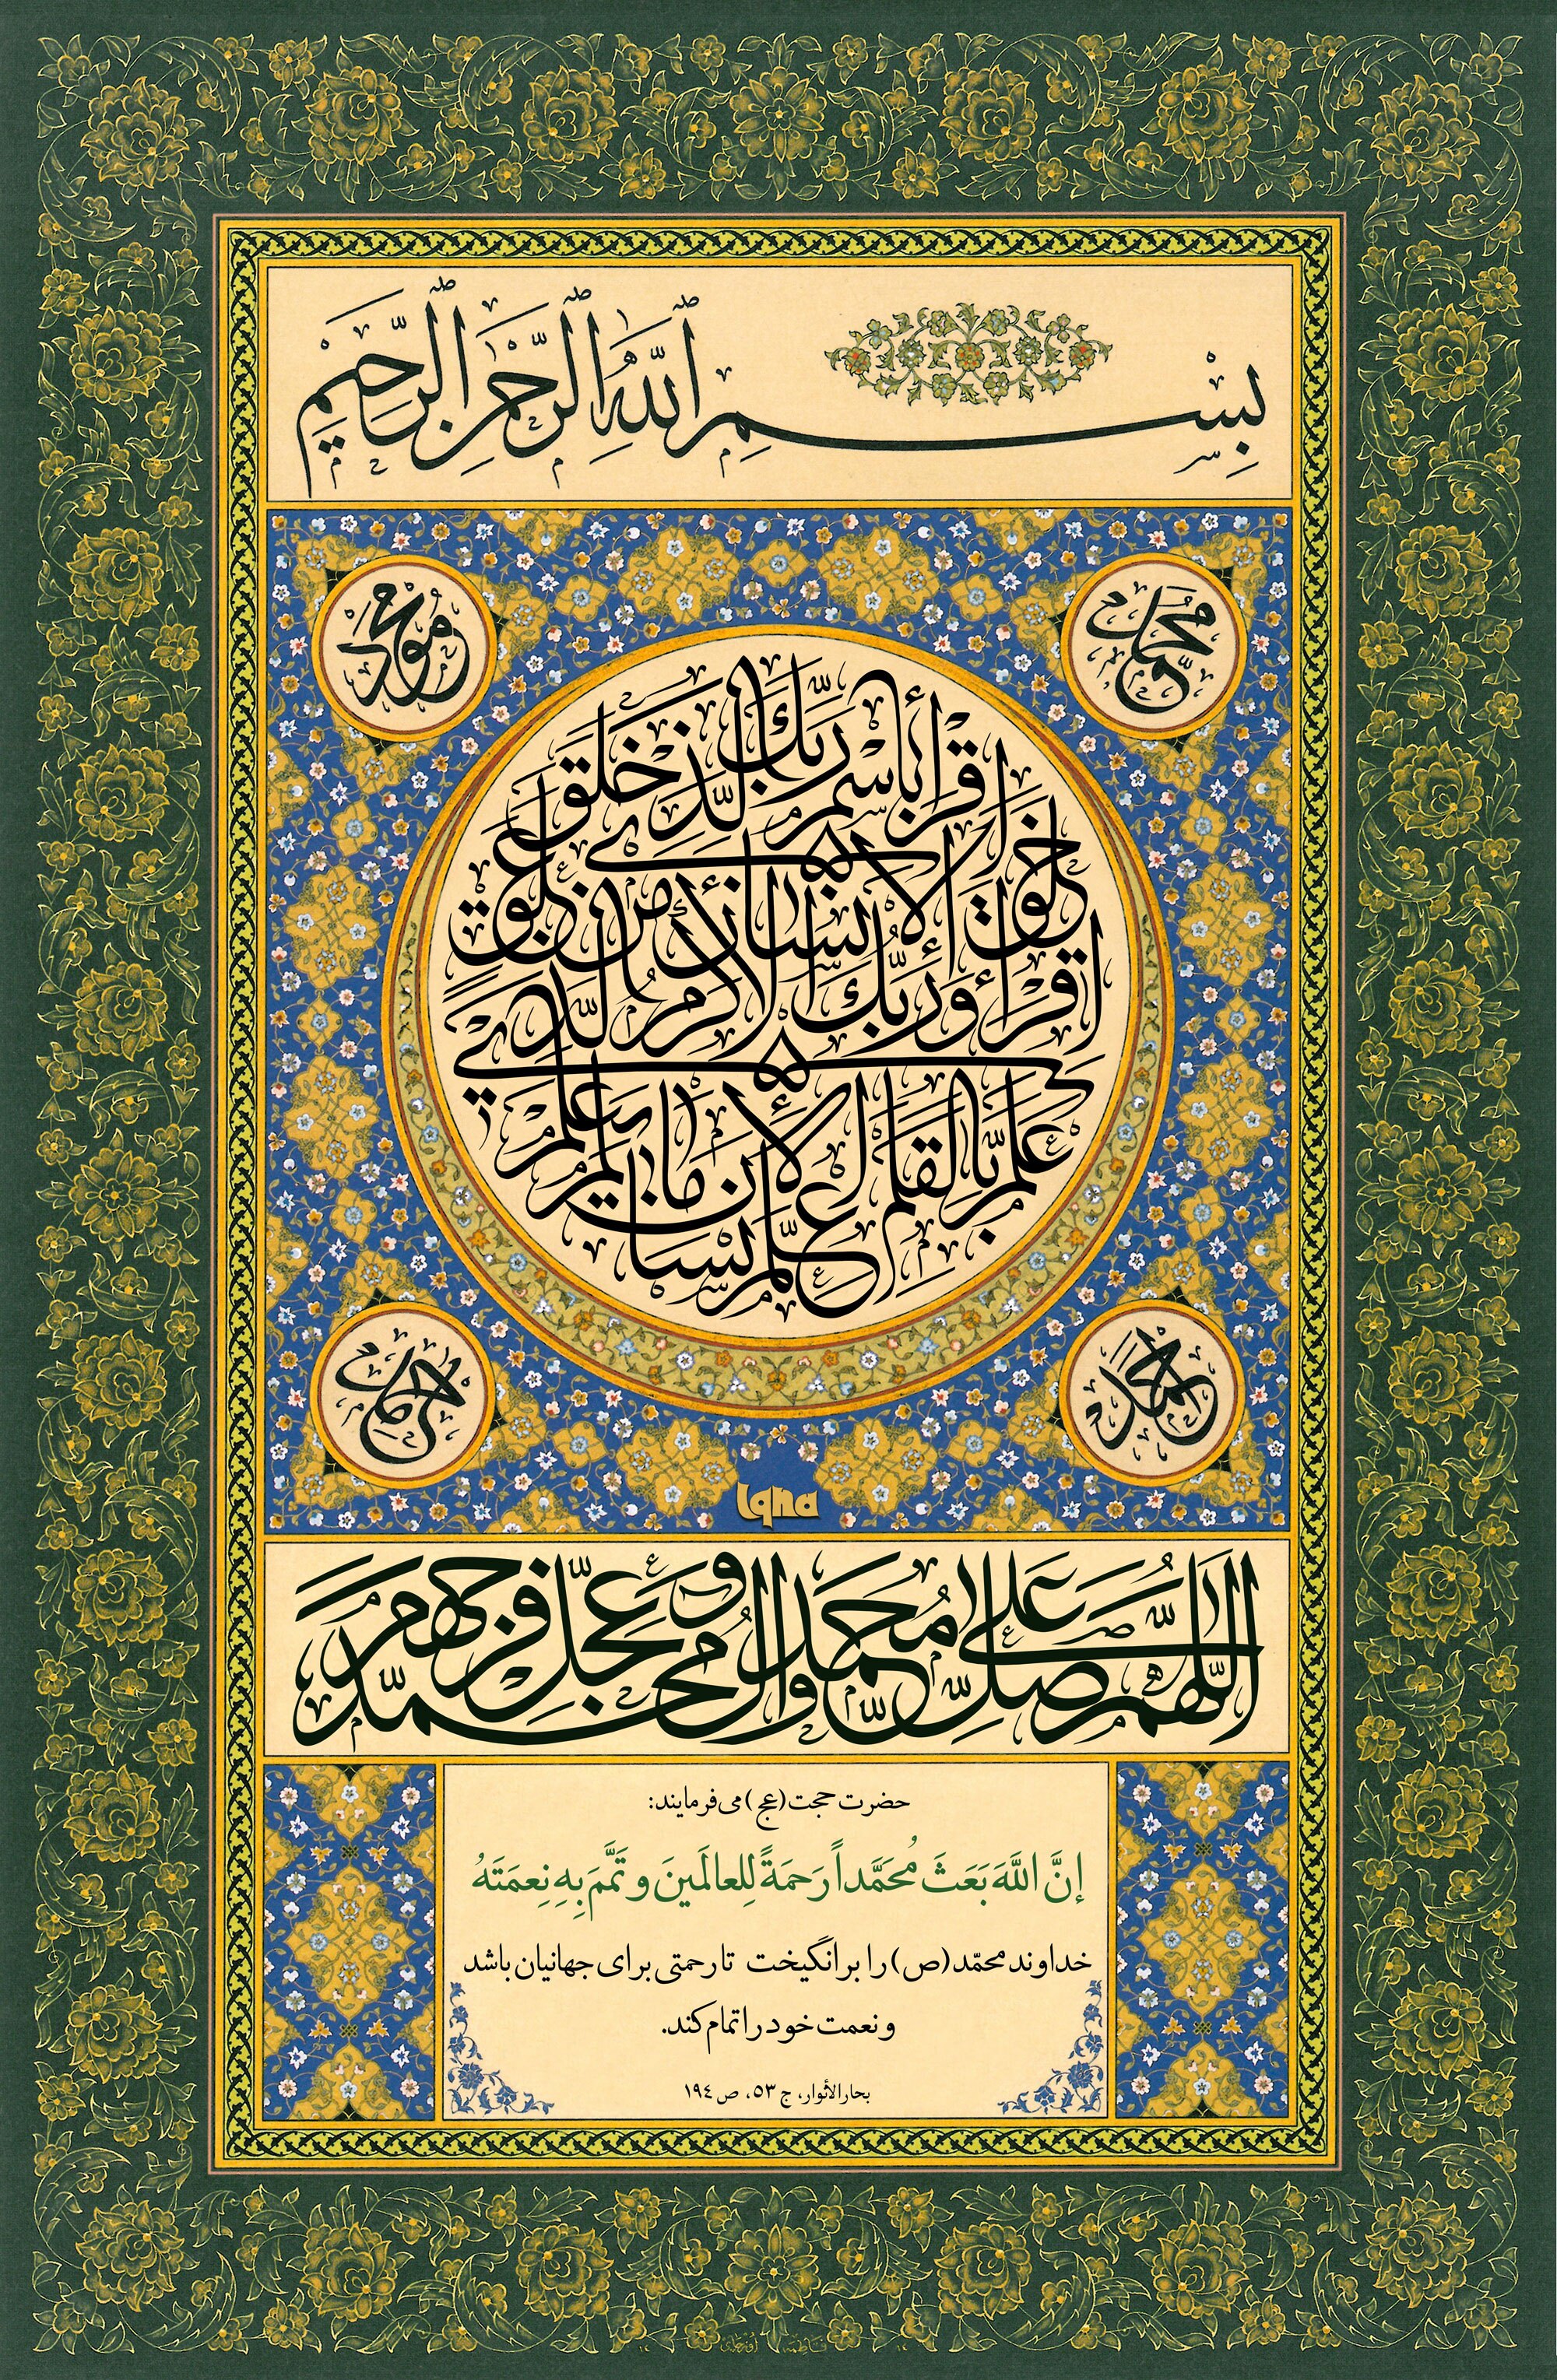 بِسْمِ اللّٰهِ الرَّحْمٰنِ الرَّحِيمِ
مُحَمَّد
مَحمُود
اِقْرَأْ بِاسْمِ رَبِّكَ الَّذِي خَلَقَ
خَلَقَ الْإِنْسَانَ مِنْ عَلَقٍ
اِقْرَأْ وَرَبُّكَ الْأَكْرَمُ الَّذِي
عَلَّمَ بِالْقَلَمِ عَلَّمَ الْإِنْسَانَ مَا لَمْ يَعْلَمْ
أحمَد
حامِد
Iqna
اللّٰهُمَّ صَلِّ عَلَى مُحَمَّدٍ وَآلِ مُحَمَّدٍ وَعَجِّلْ فَرَجَهُمْ
حضرت حجت (عج) می‌فرمایند:
إنَّ اللَّهَ بَعَثَ مُحَمَّداً رَحمَةً لِلعالَمينَ و تَمَّمَ بِهِ نِعمَتَهُ
خداوند محمّد (ص) را برانگیخت تا رحمتی برای جهانیان باشد
و نعمت خود را تمام کند.
بحارالأنوار، ج ٥٣، ص ١٩٤